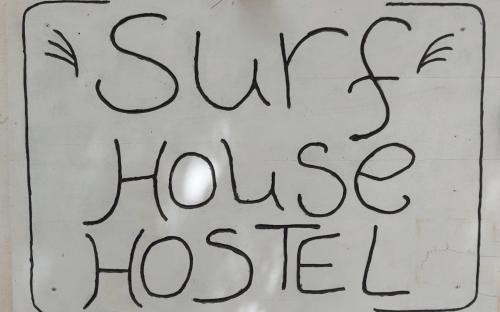 Surf
House
HOSTEL